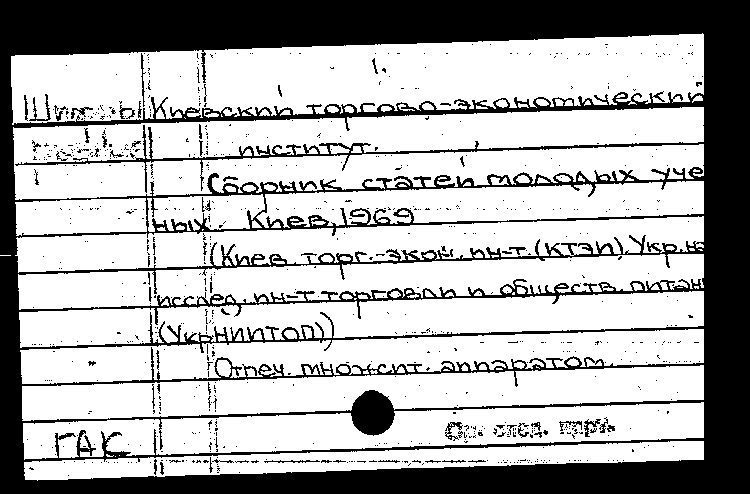 1.
Киевский торгово-экономический
институт.
Сборник статей молодых уче
ных. Киев, 1969
(Киев. торг.-экон. ин-т. (КТЭИ). Укр. на
исслед. ин-т торговли и обществ. питан
(УкрНИИТОП))
Отпеч. множит. аппаратом.
ГАК
См. след. карт.